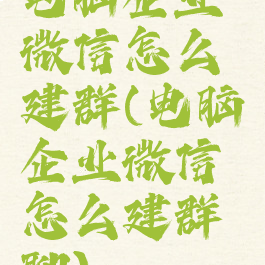 电脑企业
微信怎么
建群(电脑
企业微信
怎么建群
聊)